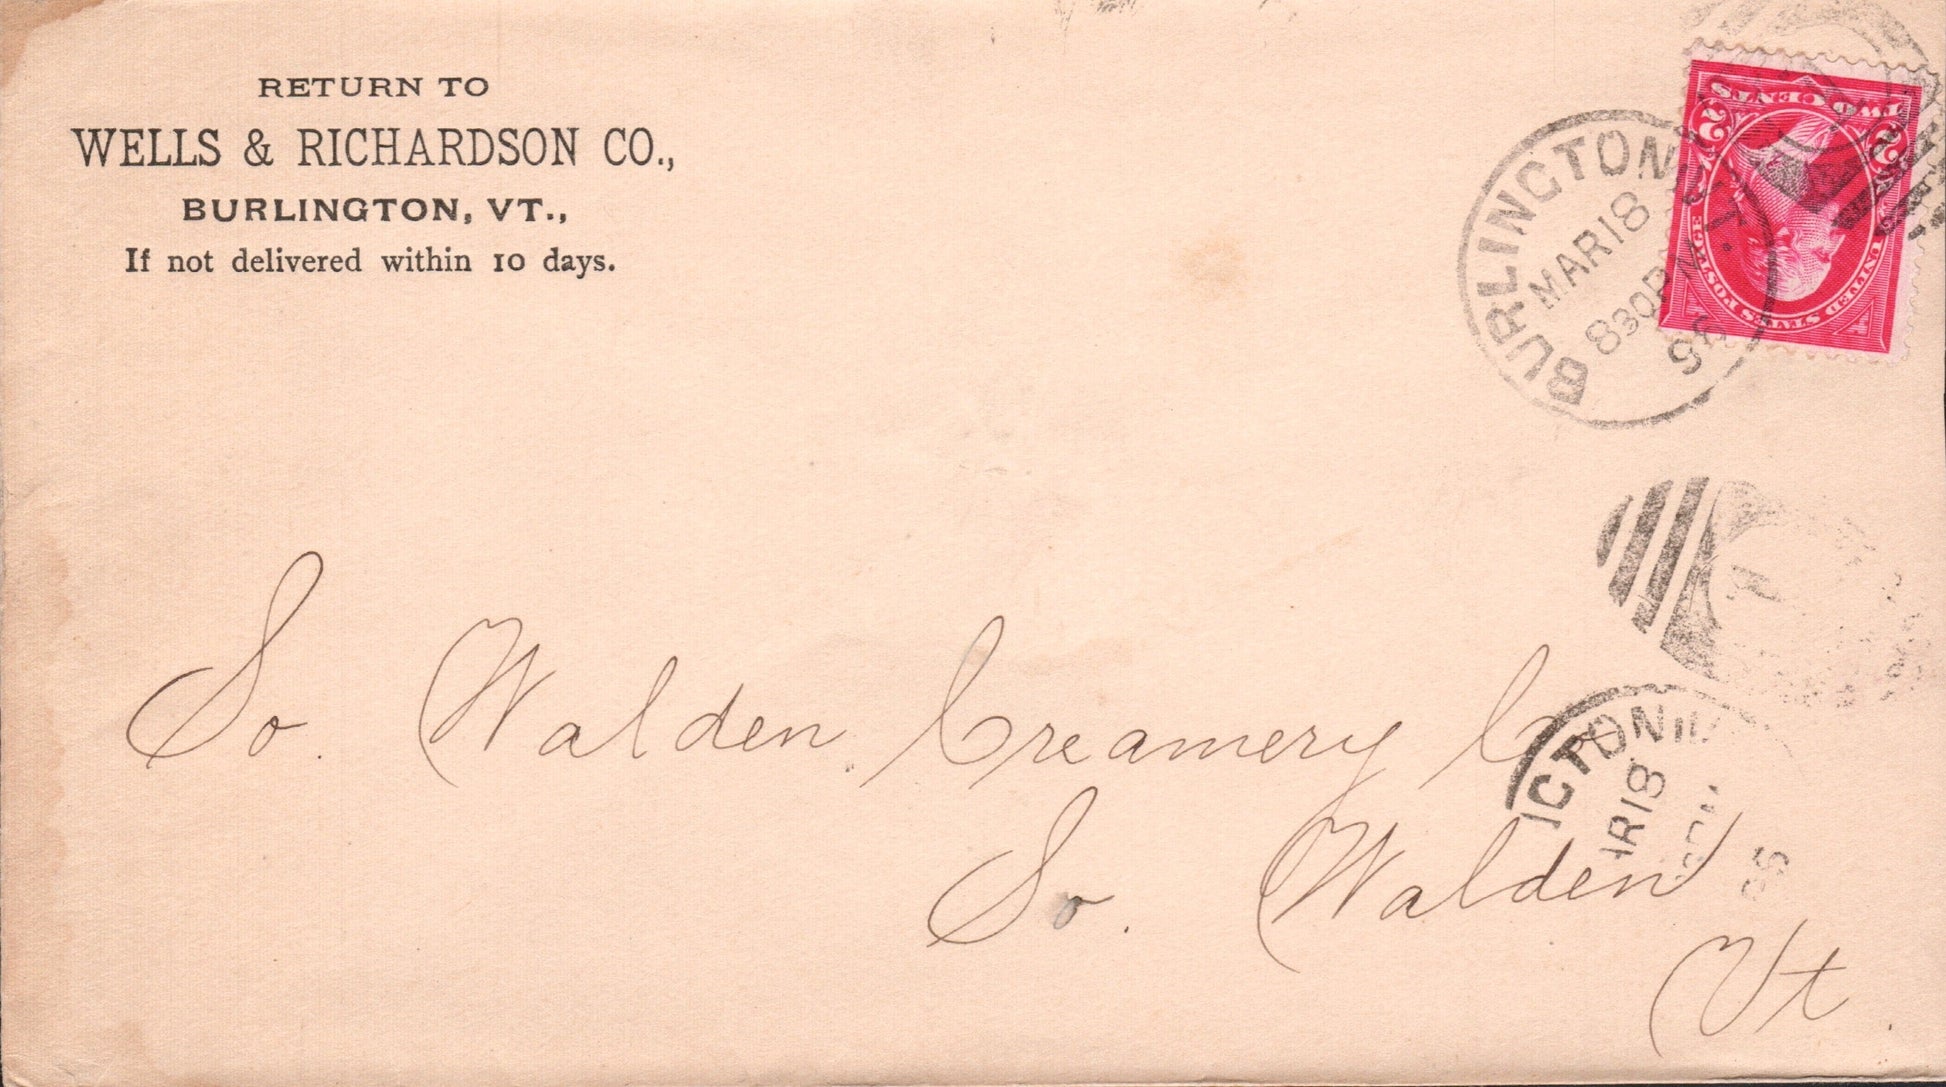 RETURN TO
WELLS & RICHARDSON CO.,
BURLINGTON, VT.,
If not delivered within 10 days.
BURLINGTON VT.
MAR 18
830 PM
96
TWO CENTS
2 2
UNITED STATES POSTAGE
So. Walden Creamery Co
So. Walden
Vt.
NGTON
AR 18
96